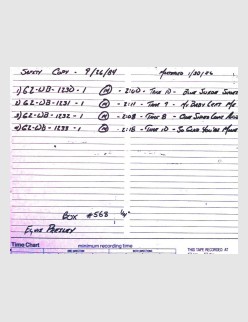 SAFETY COPY - 9/26/84 MASTERED 1/30/56
1) G2-WB-1230-1 (M) - 2:00 - TAKE 10 - BLUE SUEDE SHOES
2) G2-WB-1231-1 (M) - 2:11 - TAKE 9 - MY BABY LEFT ME
3) G2-WB-1232-1 (M) - 2:08 - TAKE 8 - ONE SIDED LOVE
4) G2-WB-1233-1 (M) - 2:15 - TAKE 10 - SO GLAD YOU'RE MINE
BOX #568 1/4"
ELVIS PRESLEY
Time Chart minimum recording time THIS TAPE RECORDED AT